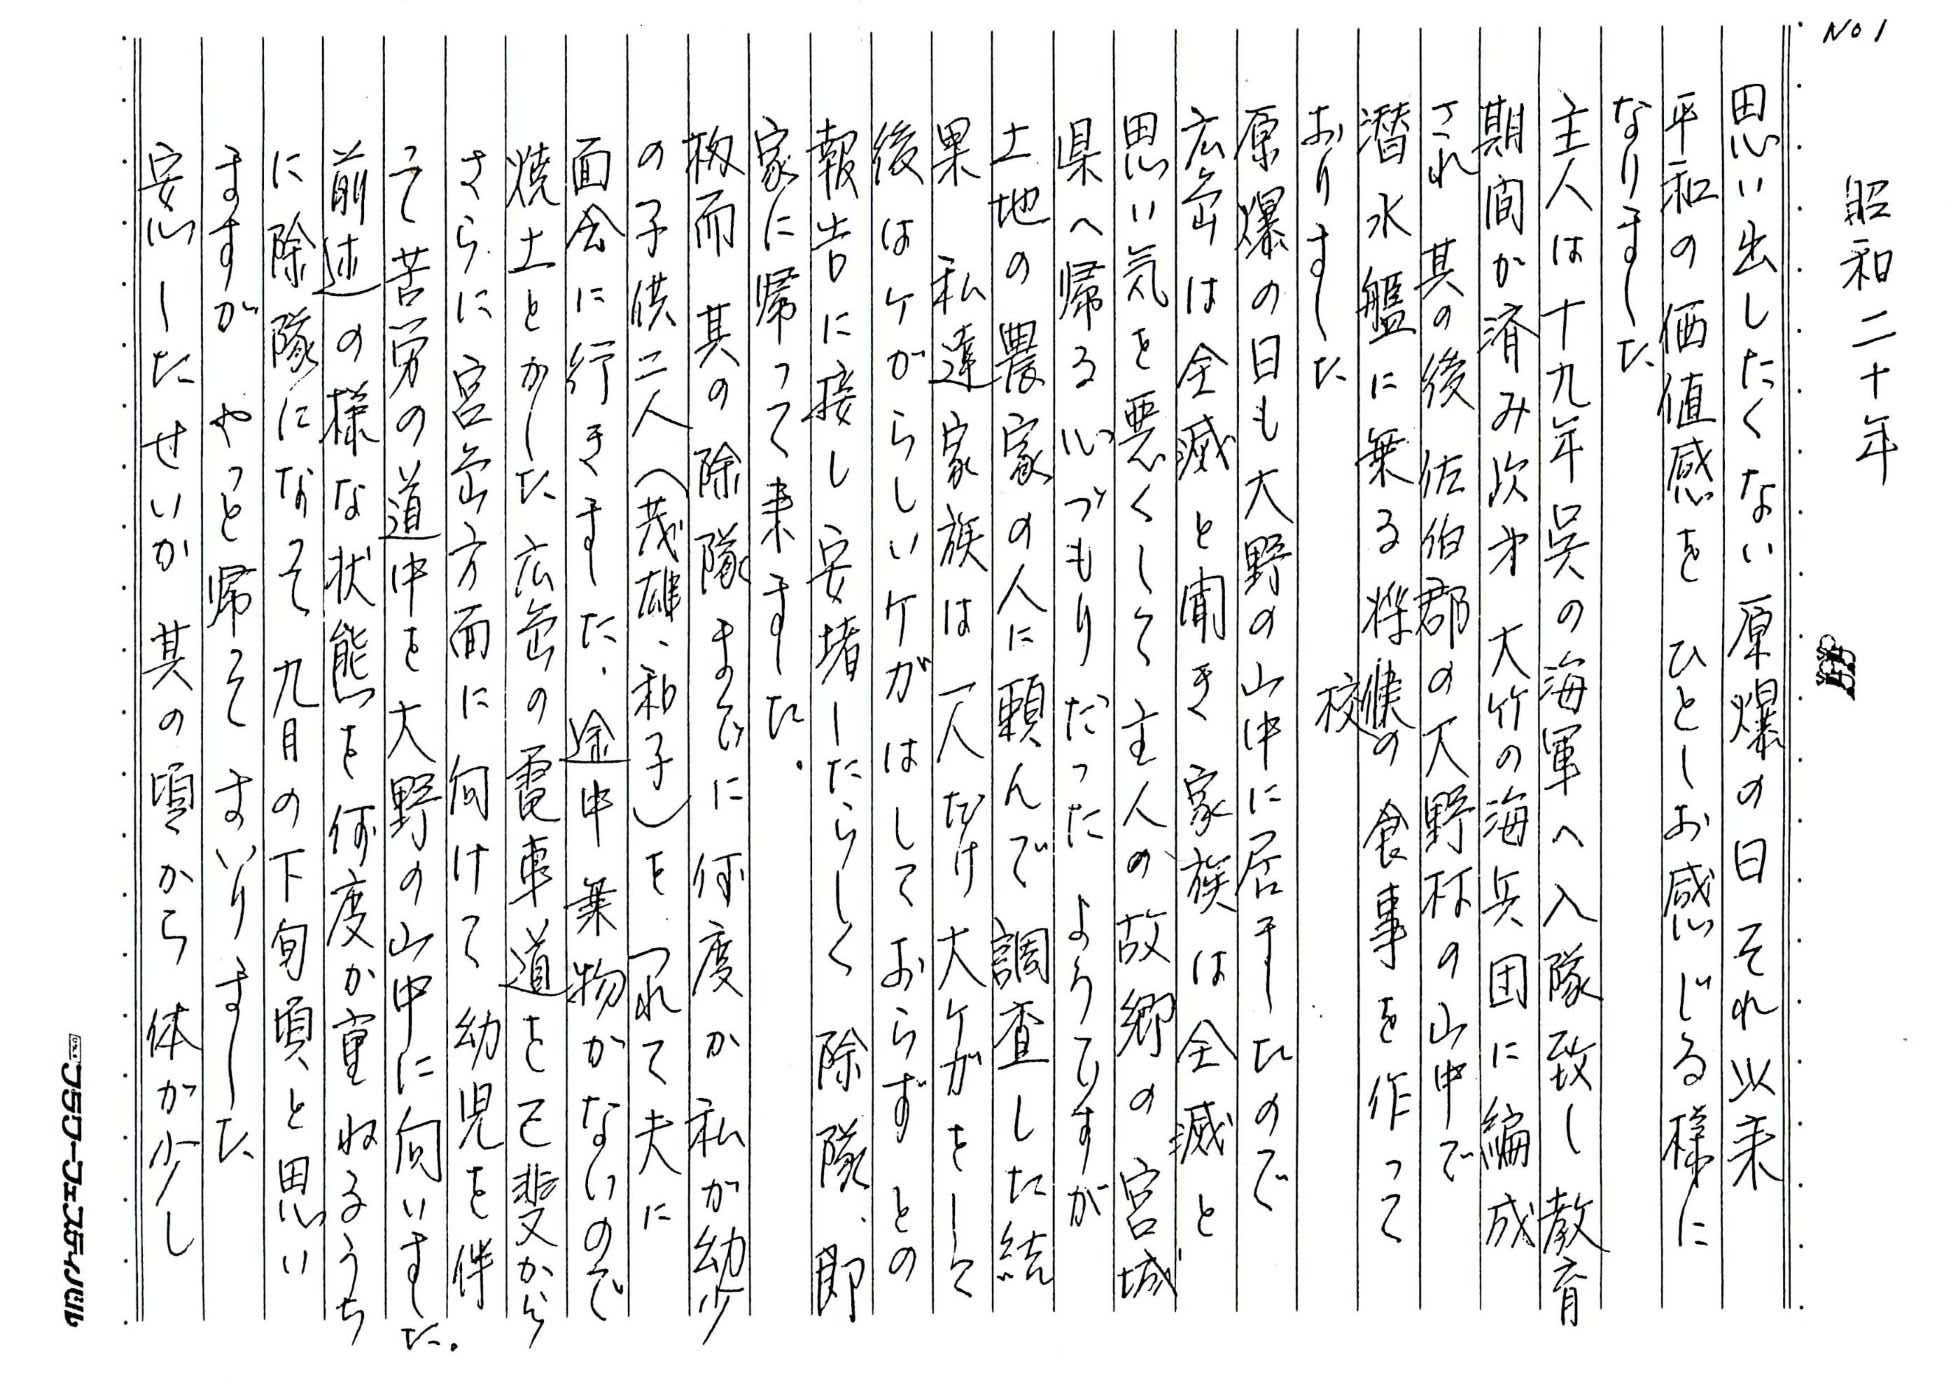 No 1
昭和二十年
思い出したくない原爆の日それ以来
平和の価値感を ひとしお感じる様に
なりました
主人は十九年呉の海軍へ入隊致し教育
期間が済み次才 大竹の海兵団に編成
され 其の後佐伯郡の大野村の山中で
潜水艦に乗る将候の食事を作って
校
おりました
原爆の日も大野の山中に居ましたので
広島は全滅と聞き 家族は全滅と
思い気を悪くして主人の故郷の宮城
県へ帰る心づもりだった ようですが
土地の農家の人に頼んで 調査した結
果 私達家族は一人だけ大ケガをして
後はケがらしいケガはしておらず との
報告に接し 安堵したらしく 除隊、即
家に帰って来ました。
扨而 其の除隊までに何度か私が幼少
の子供二人(茂雄、和子)を つれて夫に
面会に行きました、途中乗物がないので
焼土とかした広島の電車道を己斐から
さらに宮島方面に向けて幼児を伴
って苦労の道中を大野の山中に向いました。
前述の様な状態を何度か重ねるうち
に除隊になって九月の下旬頃と思い
ますが やっと帰って まいりました
安心したせいか 其の頃から 体が少し
フラワーフェスティバル